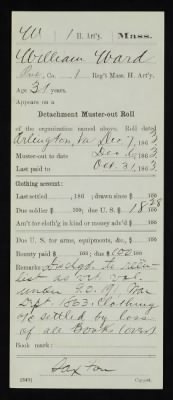 W | 1 H. Art'y. | Mass.
William Ward
Pvt., Co. 1 Reg't Mass. H. Art'y.
Age 31 years.
Appears on a
Detachment Muster-out Roll
of the organization named above. Roll dated
Arlington, Va Dec 7, 1863.
Muster-out to date Dec 6, 1863.
Last paid to Oct. 31, 1863.
Clothing account:
Last settled , 186 ; drawn since $ 100
Due soldier $ 100; due U. S. $ 18 38/100
Am't for cloth'g in kind or money adv'd $ 100
Due U. S. for arms, equipments, &c., $ 100
Bounty paid $ 100; due $ 100
Remarks: Dischgd. to reen-
list as vet. vol.
under G.O. 191 War
Dept. 1863. Clothing
settled by loss
of all Books (over)
Book mark:
Saxton
(349) Copyist.